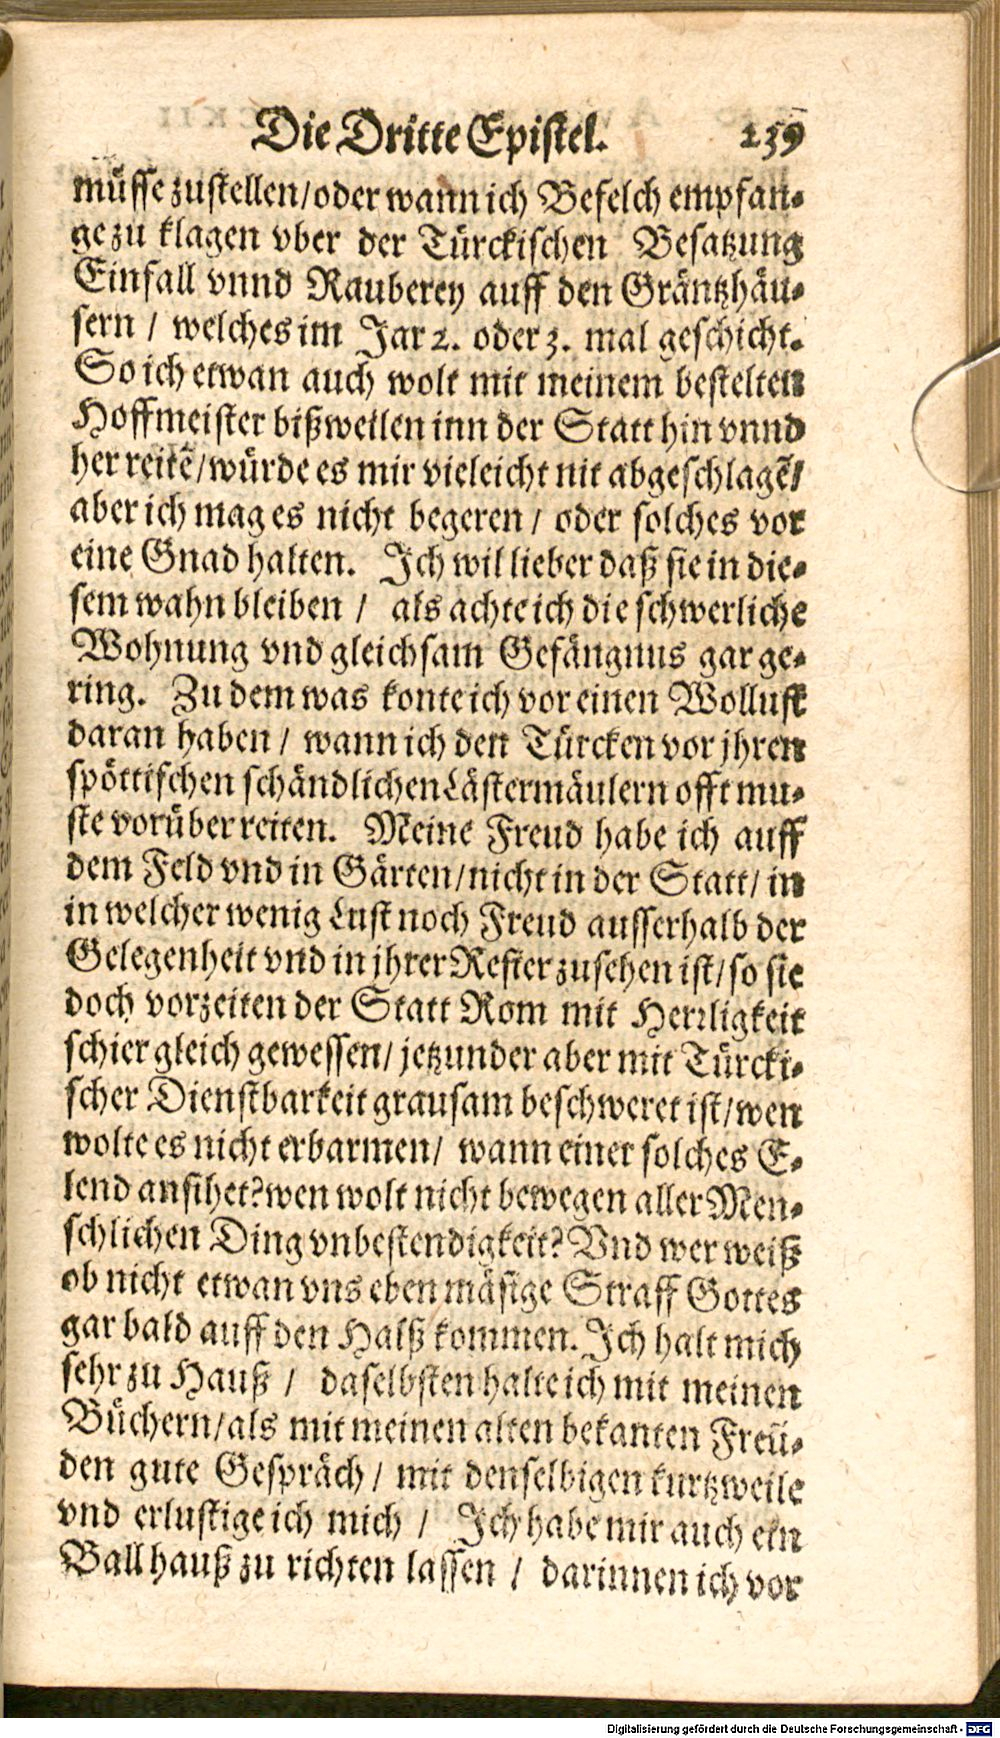 Die Dritte Epistel. 239
müsse zustellen/oder wann ich Befelch empfan-
ge zu klagen vber der Türckischen Besatzung
Einfall vnnd Rauberey auff den Gräntzhäu-
sern / welches im Jar 2. oder 3. mal geschicht.
So ich etwan auch wolt mit meinem bestelten
Hoffmeister bißweilen inn der Statt hin vnnd
her reitẽ/würde es mir vieleicht nit abgeschlagẽ/
aber ich mag es nicht begeren / oder solches vor
eine Gnad halten. Ich wil lieber daß sie in die-
sem wahn bleiben / als achte ich die schwerliche
Wohnung vnd gleichsam Gefängnus gar ge-
ring. Zu dem was konte ich vor einen Wollust
daran haben / wann ich den Türcken vor jhren
spöttischen schändlichen Lästermäulern offt mu-
ste vorüber reiten. Meine Freud habe ich auff
dem Feld vnd in Gärten/nicht in der Statt/ in
in welcher wenig Lust noch Freud ausserhalb der
Gelegenheit vnd in jhrer Rester zusehen ist/so sie
doch vorzeiten der Statt Rom mit Herrligkeit
schier gleich gewessen/ jetzunder aber mit Türcki-
scher Dienstbarkeit grausam beschweret ist/wen
wolte es nicht erbarmen/ wann einer solches E-
lend ansihet?wen wolt nicht bewegen aller Men-
schlichen Ding vnbestendigkeit? Vnd wer weiß
ob nicht etwan vns eben mäsige Straff Gottes
gar bald auff den Halß kommen. Ich halt mich
sehr zu Hauß / daselbsten halte ich mit meinen
Büchern/als mit meinen alten bekanten Freü-
den gute Gespräch / mit denselbigen kurtzweile
vnd erlustige ich mich / Ich habe mir auch ein
Ballhauß zu richten lassen / darinnen ich vor
Digitalisierung gefördert durch die Deutsche Forschungsgemeinschaft - DFG